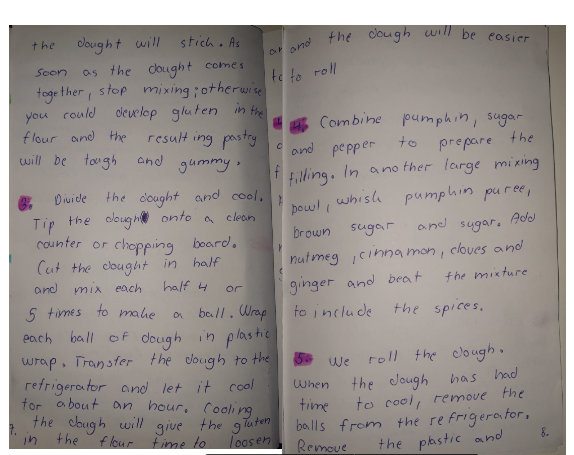 the dought will stick. As
soon as the dought comes
together, stop mixing; otherwise
you could develop gluten in the
flour and the resulting pastry
will be tough and gummy.
3. Divide the dought and cool.
Tip the dough onto a clean
counter or chopping board.
Cut the dought in half
and mix each half 4 or
5 times to make a ball. Wrap
each ball of dough in plastic
wrap. Transfer the dough to the
refrigerator and let it cool
for about an hour. Cooling
the dough will give the gluten
in the flour time to loosen
7.
and the dough will be easier
to roll
4. Combine pumpkin, sugar
and pepper to prepare the
filling. In another large mixing
bowl, whish pumpkin puree,
brown sugar and sugar. Add
nutmeg, cinnamon, cloves and
ginger and beat the mixture
to include the spices.
5. We roll the dough.
When the dough has had
time to cool, remove the
balls from the refrigerator.
Remove the plastic and
8.